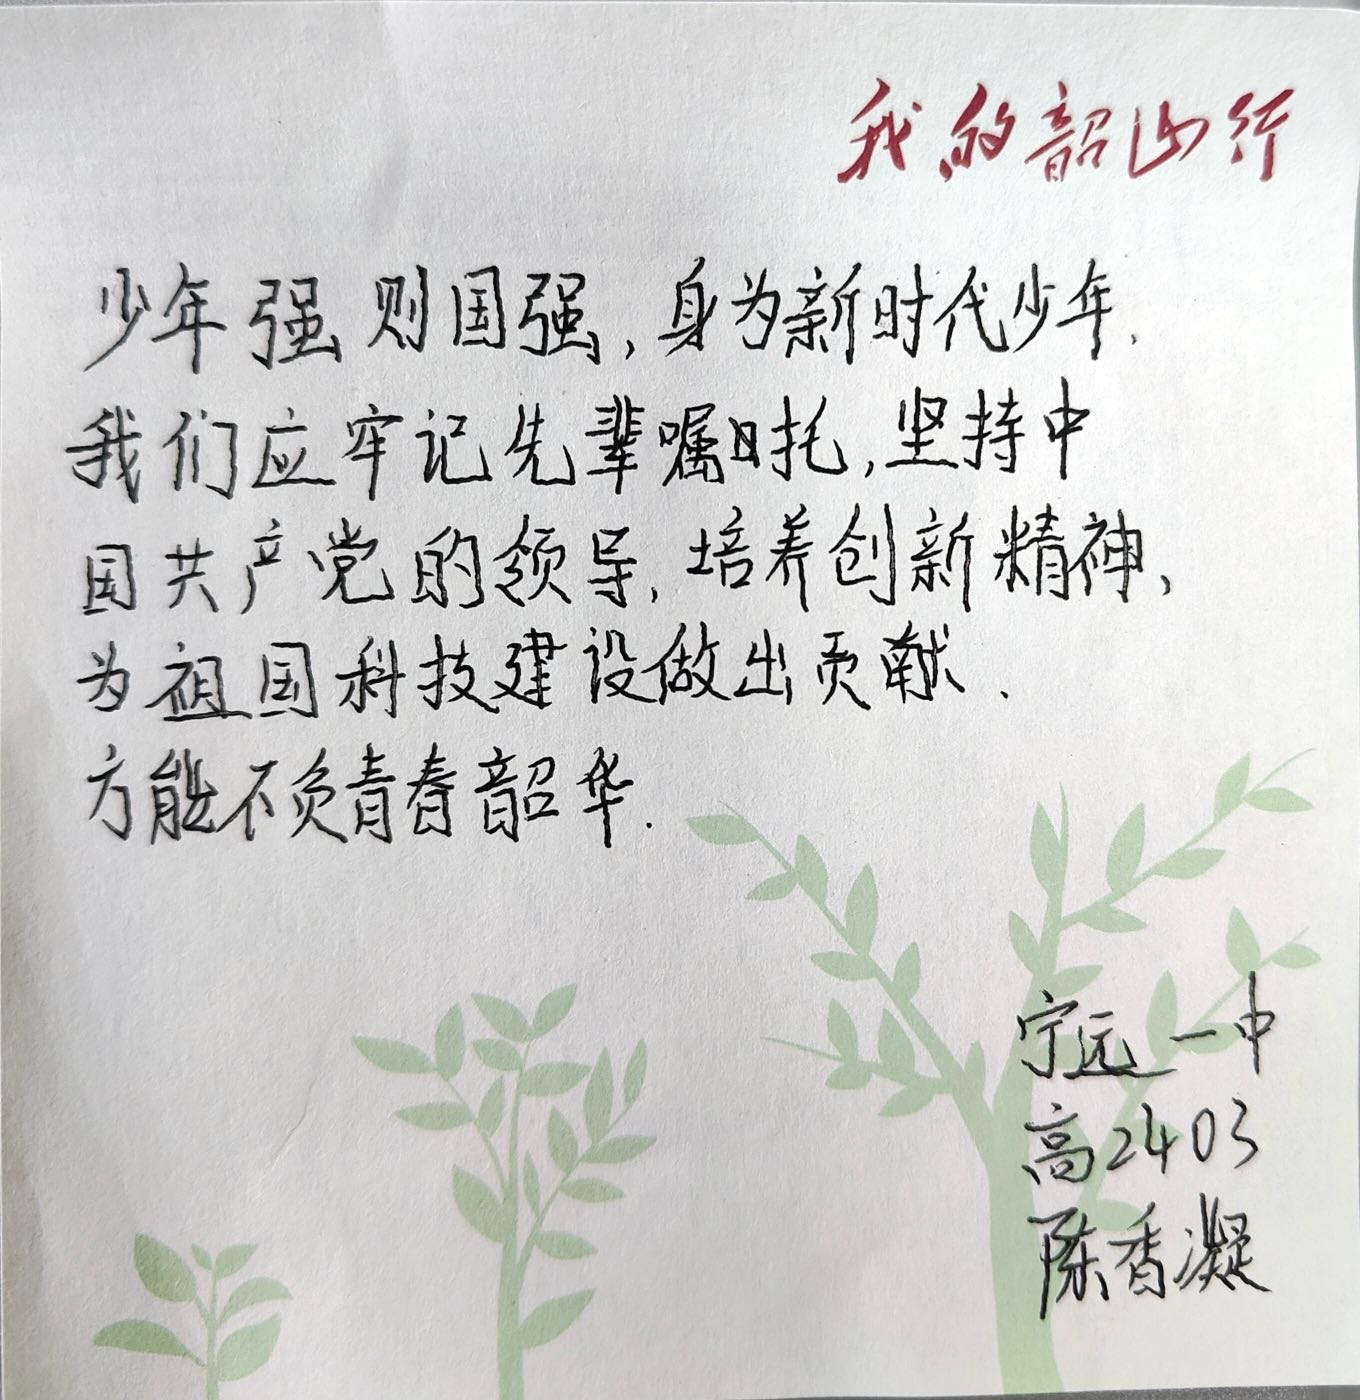 我的韶山行
少年强则国强,身为新时代少年.
我们应牢记先辈嘱托,坚持中
国共产党的领导,培养创新精神,
为祖国科技建设做出贡献.
方能不负青春韶华.
宁远一中
高2403
陈香凝